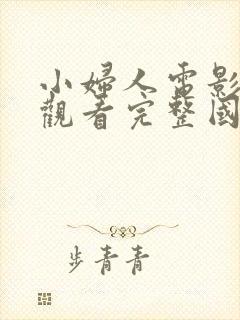 小婦人電影
觀看完整國
步青青